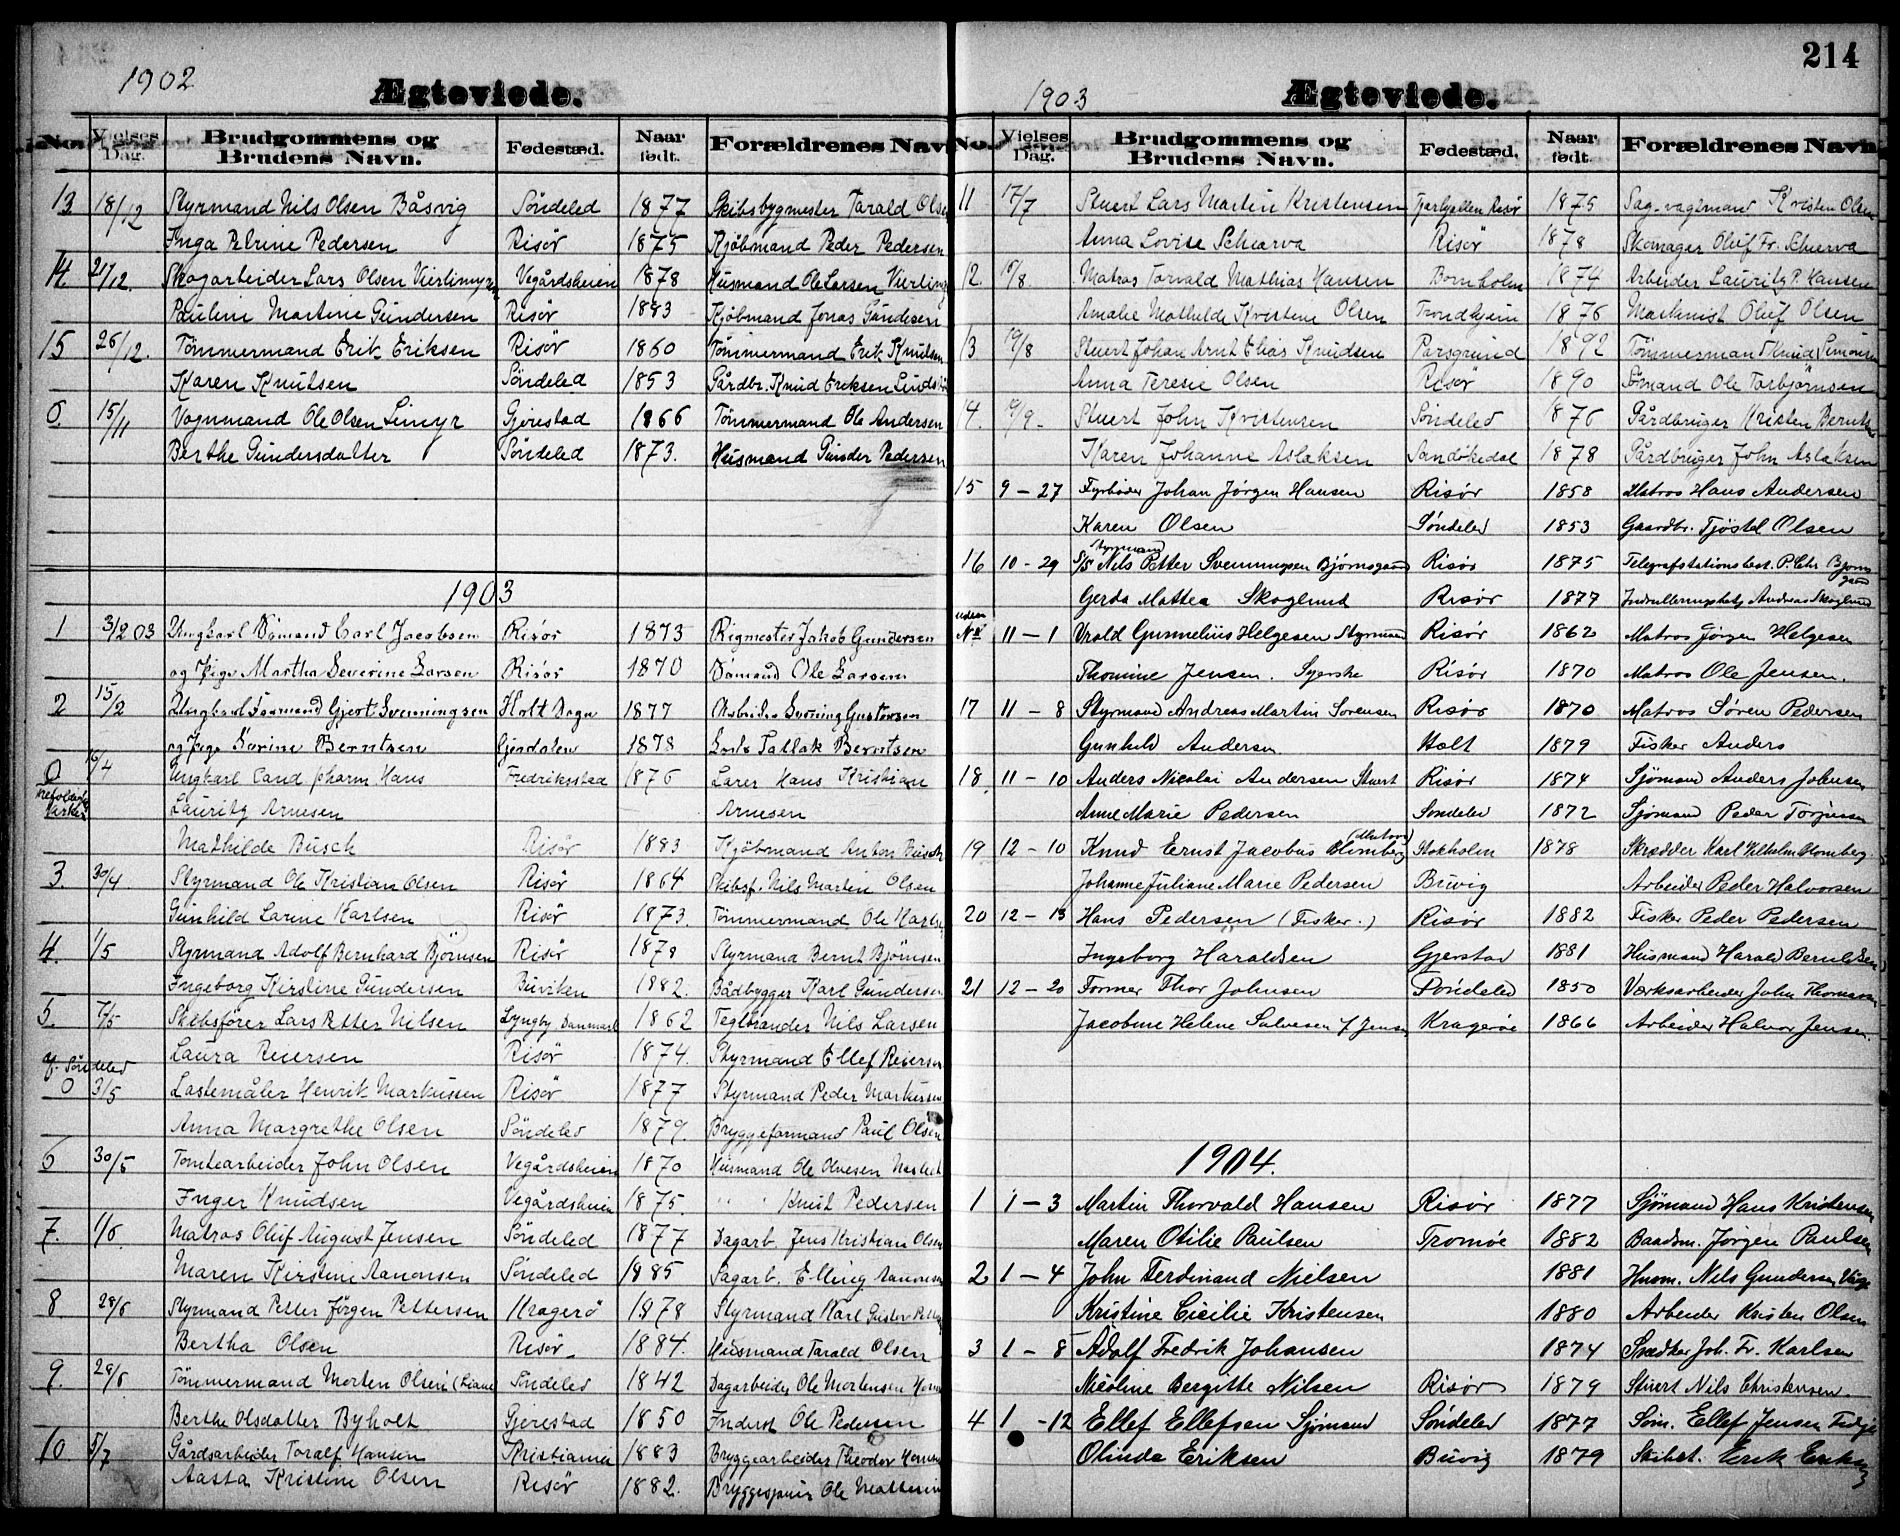 1902
Ægteviede.
No. Vielses Dag. Brudgommens og Brudens Navn. Fødested. Naar født. Forældrenes Nav
13 18/12 Styrmand Nils Olsen Båsvig Söndeled 1877 Skibsbygmester Tarald Olse
Inga Petrine Pedersen Risör 1875 Kjöbmand Peder Pedersen
14. 21/12. Skogarbeider Lars Olsen Vegårdsheien 1878 Husmand Ole Larsen
Pauline Martine Gundersen Risör 1883 Kjöbmand Jonas Gundersen
15 26/12. Tömmermand Erik Eriksen Risör 1860 Tömmermand Erik Knutsen
Karen Knutsen Söndeled 1853 Gårdbr. Knud Eriksen
0. 15/11 Vognmand Ole Olsen Limyr Gjerestad 1866 Tömmermand Ole Andersen
Berthe Gundersdatter Söndeled 1873. Husmand Gunder Pedersen
1903
1 3/2 03 Ungkarl Sömand Carl Jacobsen Risör 1873 Rigmester Jakob Gundersen
og Pige Martha Severine Larsen Risör 1870 Sömand Ole Larsen
2 15/2 Ungkarl Sömand Gjert Svenningsen Holt Sogn 1877 Arbeider Svening Gustavsen
og Pige Berntsen 1878 Tallak Berntsen
0 16/4 Ungkarl Cand pharm Hans Fredriksstad 1876 Lærer Hans Kristian
Lauritz Arnesen Arnesen
Mathilde Busch Risör 1883 Kjöbmand Anton Busch
3. 30/4 Styrmand Ole Kristian Olsen Risör 1864 Skibsf. Nils Martin Olsen
Gunhild Larine Karlsen Risör 1873. Tömmermand Ole Karls
4. 1/5 Styrmand Adolf Bernhard Björnsen Risör 1878 Styrmand Bernt Björnsen
Ingeborg Kirstine Gundersen Buviken 1882. Bådbygger Karl Gundersen
5. 7/5 Skibsförer Lars Petter Nilsen Lyngby Danmark 1862 Teglbrænder Nils Larsen
Laura Reiersen Risör 1874. Styrmand Ellef Reiersen
Söndeled
0 3/5 Lastemåler Henrik Markussen Risör 1877 Styrmand Peder Markussen
Anna Margrethe Olsen Söndeled 1879. Bryggeformand Paul Olsen
6 30/5 Tomtearbeider John Olsen Vegårdsheien 1870 Husmand Ole
Inger Knudsen Vegårdsheien 1875. " " Knut Pedersen
7. 1/6. Matros Oluf August Jensen Söndeled 1877 Dagarb. Jens Kristian Olsen
Maren Kirstine Aanonsen Söndeled 1885 Sagarb. Elling Aanonsen
8 28/6 Styrmand Petter Jörgen Pettersen Kragerö 1878 Styrmand Karl Gustav
Bertha Olsen Risör 1884. Husmand Tarald Olsen
9. 28/6 Tömmermand Morten Olsen Söndeled 1842 Dagarbeider Ole Mortensen
Berthe Olsdatter Byholt Gjerestad 1850 Inderst Ole Pedersen
10 5/7 Gårdsarbeider Toralf Hansen Kristiania 1883 Bryggearbeider Theodor Hansen
Aasta Kristine Olsen Risör 1882. Ole
214
1903
Ægteviede.
No. Vielses Dag. Brudgommens og Brudens Navn. Fødested. Naar født. Forældrenes Navn
11 17/7 Stuert Lars Martin Kristensen Risör 1875 Sag-vagtmand Kristen Olsen
Anna Lovise Schærva Risör 1878 Skomager Oluf Fr. Schærva
12. Matros Torvald Mathias Hansen Bornholm 1874 Arbeider Lauritz P. Hansen
Amalie Mathilde Kristine Olsen Trondhjem 1876 Maskinist Oluf Olsen
13 19/8 Stuert Johan Arnt Elias Knudsen Porsgrund 1892 Tömmerman Knud Simonsen
Anna Teresie Olsen Risör 1890 Sömand Ole Torbjörnsen
14. Stuert John Kristensen Söndeled 1876 Gårdbruger Kristen Berntsen
Karen Johanne Aslaksen Sandökedal 1878 Gårdbruger John Aslaksen
15 9 - 27 Fyrböder Johan Jørgen Hansen Risør 1858 Matros Hans Andersen
Karen Olsen Søndeled 1853 Gaardbr. Tjøstel Olsen
16 10 - 29 Styrmand S/S Nils Petter Svenningsen Bjørnsgaard Risør 1875 Telegrafstationsbest. P. Chr. Bjørnsgaard
Gerda Mathea Skoglund Risør 1877 Andreas Skoglund
uden No 11 - 1 Vrald Gunnelius Helgesen Styrmand Risør 1862 Matros Jørgen Helgesen
Thomine Jensen. Syerske Risør 1870 Matros Ole Jensen.
17 11 - 8 Styrmand Andreas Martin Sørensen Risør 1870 Matros Søren Pedersen
Gunhild Andersen Holt 1879 Fisker Anders
18. 11 - 10 Anders Nicolai Andersen Stuert Risør 1874 Sjømand Anders Johnsen
Anne Marie Pedersen Søndeled 1872 Sjømand Peder Torjussen
19 12 - 10 Knud Ernst Jacobus Blomberg (Matros) Stokholm 1878 Skrædder Karl Vilhelm Blomberg.
Johanne Juliane Marie Pedersen Buvig Arbeider Peder Halvorsen
20 12 - 13 Hans Pedersen (Fisker.) Risør 1882 Fisker Peder Pedersen
Ingeborg Haraldsen Gjerstad 1881 Husmand Harald Berntsen
21 12 - 20 Former Thor Johnsen Søndeled 1850 Værksarbeider John Thomassen
Jacobine Helene Salvesen f. Jensen Kragerøe 1866 Arbeider Halvor Jensen.
1904.
1 1 - 3 Martin Thorvald Hansen Risør 1877 Sjømand Hans Kristensen
Maren Otilie Paulsen Tromøe 1882 Baadsm. Jørgen Paulsen
2 1 - 4 John Ferdinand Nielsen 1881 Husm. Nils Gundersen
Kristine Cicilie Kristensen 1880 Arbeider Kristen Olsen
3 1 - 8 Adolf Fredrik Johansen 1874 Snedker Joh. Fr. Karlsen
Nicoline Bergitte Nilsen Risør 1879 Stuert Nils Christensen.
4 1 - 12 Ellef Ellefsen Sjømand Søndeled 1877 Søm. Ellef Jensen
Olinde Eriksen Buvig 1879 Skibst. Erik Eriksen